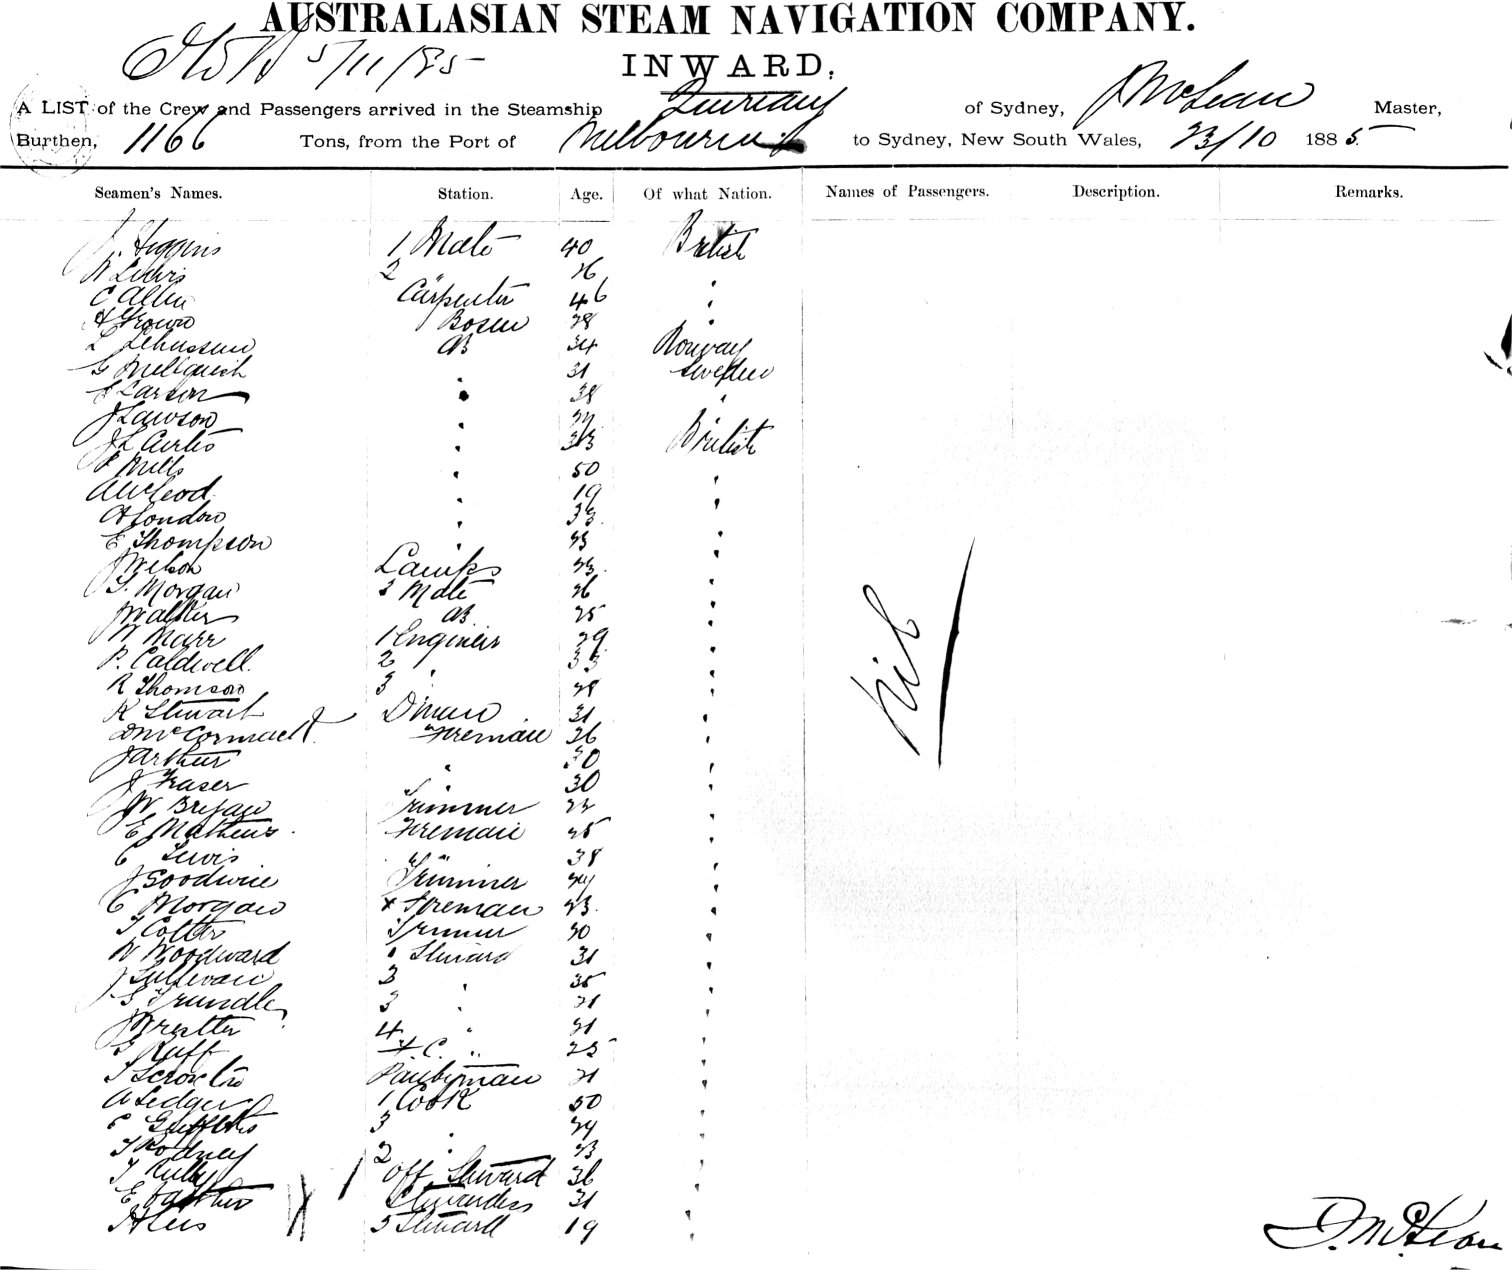 AUSTRALASIAN STEAM NAVIGATION COMPANY.
5/11/85
INWARD,
A LIST of the Crew and Passengers arrived in the Steamship of Sydney, J McLean Master,
Burthen, 1166 Tons, from the Port of Melbourne to Sydney, New South Wales, 23/10 1885.
Seamen's Names. Station. Age. Of what Nation. Names of Passengers. Description. Remarks.
J. Higgins 1 Mate 40 British
W Lewis 2 " 26 "
C Allen Carpenter 46 "
A Brown Bosun 28 "
L AB 34 Norway
G " 31 Sweden
Larson " 38 "
J Lawson "
J L Curtis " 33 British
Mills " 50 "
A McLeod " 19 "
A London " 33 "
E Thompson " 23 "
J Wilson Lamps 23 "
T. Morgan 3 Mate 26 "
J Walker AB 25 "
W Marr 1 Engineer 29 "
P. Caldwell 2 " 33 "
R Thomson 3 " 28 "
R Stewart 31 "
D McCormack Fireman 36 "
J Arthur " 30 "
J Fraser " 30 "
J W Trimmer 22 "
E Mathews Fireman 25 "
C Lewis " 38 "
J Goodwin Trimmer 24 "
C Morgan Fireman 23 "
T Cotter Trimmer 20 "
W Woodward 1 Steward 31 "
J Sullivan 2 " 35 "
S Trundle 3 " 21 "
4 " 21 "
Ruff F.C. " 25 "
T Pantryman 21 "
A Ledger 1 Cook 50 "
E Griffiths 3 " 24 "
T Rodney 2 " 23 "
T Off Steward 36 "
E Stewardess 31 "
H Lees 3 Steward 19 "
Nil
J. McLean